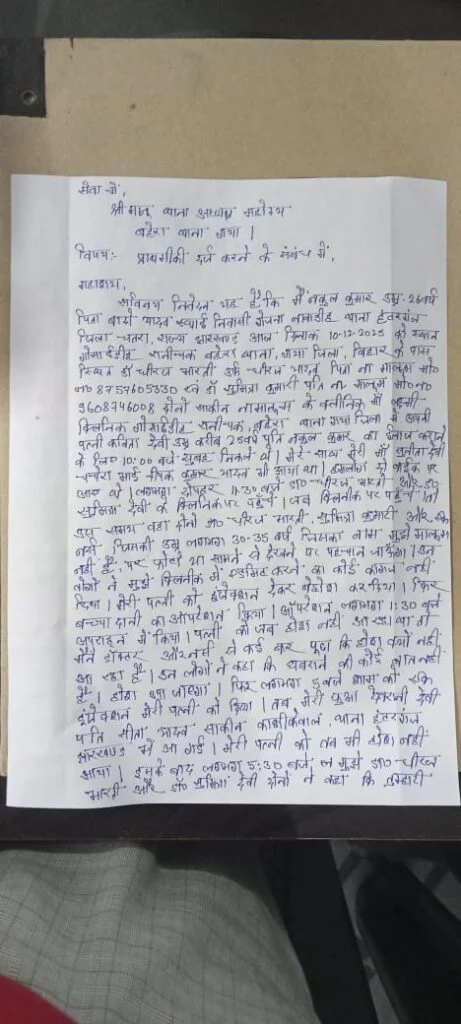 सेवा में,
श्रीमान् थाना अध्यक्ष महोदय
बहेरा थाना गया।
विषय:- प्राथमीकी दर्ज करने के संबंध में,
महाशय,
सविनय निवेदन यह है कि मैं नकुल कुमार उम्र-26 वर्ष
पिता यादव स्थाई निवासी नावाडीह थाना हंटरगंज
जिला-चतरा, राज्य झारखण्ड आज दिनांक 10-12-2025 को स्थान
गोसाईडीह शनीचक बहेरा थाना, गया जिला, बिहार के पास
स्थित डॉ धीरज भारती उर्फ धीरज यादव पिता ना मालूम मो०
no 8757605330 एवं डॉ सुमित्रा कुमारी पति ना मालूम मो० no
9608746008 दोनों साकीन नामालूम के क्लीनिक माँ लक्ष्मी
क्लिनिक गोसाईडीह शनीचक, बहेरा थाना गया जिला में अपनी
पत्नी कविता देवी उम्र करीब 25 वर्ष पति नकुल कुमार का ईलाज कराने
के लिए 10:00 बजे सुबह निकले थे। मेरे साथ मेरी माँ सुनीता देवी
चचेरा भाई दीपक कुमार यादव भी आया था। हमलोग दो बाईक पर
आए थे। लगभग दोपहर 11:30 बजे डा० धीरज भारती और डा०
सुमित्रा देवी के क्लिनिक पर पहुँचे। जब क्लिनीक पर पहुँचे तो
उस समय वहा दोनों डा० धीरज भारती, सुमित्रा कुमारी और एक
नर्स जिसकी उम्र लगभग 30-35 वर्ष जिसका नाम मुझे मालूम
नहीं है, पर फोटो या सामने से देखने पर पहचान जाऊँगा। उन
लोगों ने मुझे क्लिनीक में एडमिट करने का कोई कागज नहीं
दिया। मेरी पत्नी को इंजेक्शन देकर बेहोश कर दिया। फिर
बच्चा दानी का ऑपरेशन किया। ऑपरेशन लगभग 11:30 बजे
अपराहन में किया। पत्नी को जब होश नहीं आ रहा था तो
मैंने डॉक्टर और नर्स से कई बार पूछा कि होश क्यों नहीं
आ रहा है। उन लोगों ने कहा कि घबराने की कोई बात नहीं
है। होश आ जाएगा। फिर लगभग 5 बजे शाम को एक
इंजेक्शन मेरी पत्नी को दिया। तब मेरी फुआ देवी
पति सीता यादव साकीन थाना हंटरगंज
झारखण्ड से आ गई। मेरी पत्नी को तब भी होश नहीं
आया। इसके बाद लगभग 5:30 बजे मुझे डा० धीरज
भारती और डा० सुमित्रा देवी दोनों ने कहा कि तुम्हारी